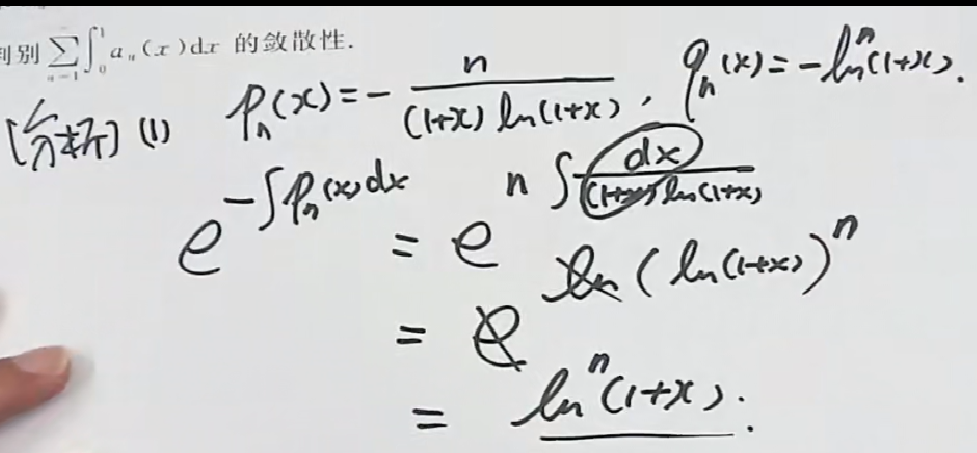 判别 $\sum_{n=1}^{\infty}\int_0^1 a_n(x)dx$ 的敛散性.
[分析] (1) $p_n(x) = -\frac{n}{(1+x)\ln(1+x)}$, $q_n(x) = -\ln^n(1+x)$.
$e^{-\int p_n(x)dx} = e^{n\int \frac{dx}{(1+x)\ln(1+x)}}$
$= e^{\ln(\ln(1+x))^n}$
$= \ln^n(1+x)$.